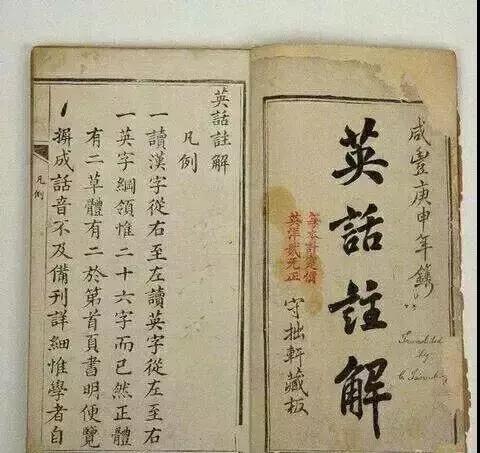 咸豐庚申年鐫
英話註解
每本計
英洋貳元正
守拙軒藏板
Translated
by
英話註解
凡例
一讀漢字從右至左讀英字從左至右
一英字綱領惟二十六字而已然正體
有二草體有二於第首頁書明便覽
一撰成話音不及備刊詳細惟學者自
凡例